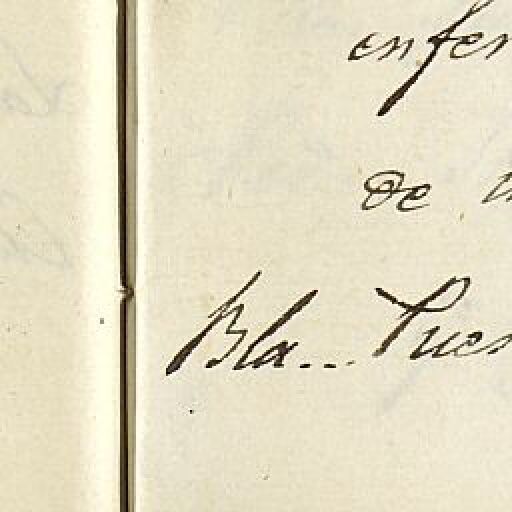 enfer
de
Bla... Pues